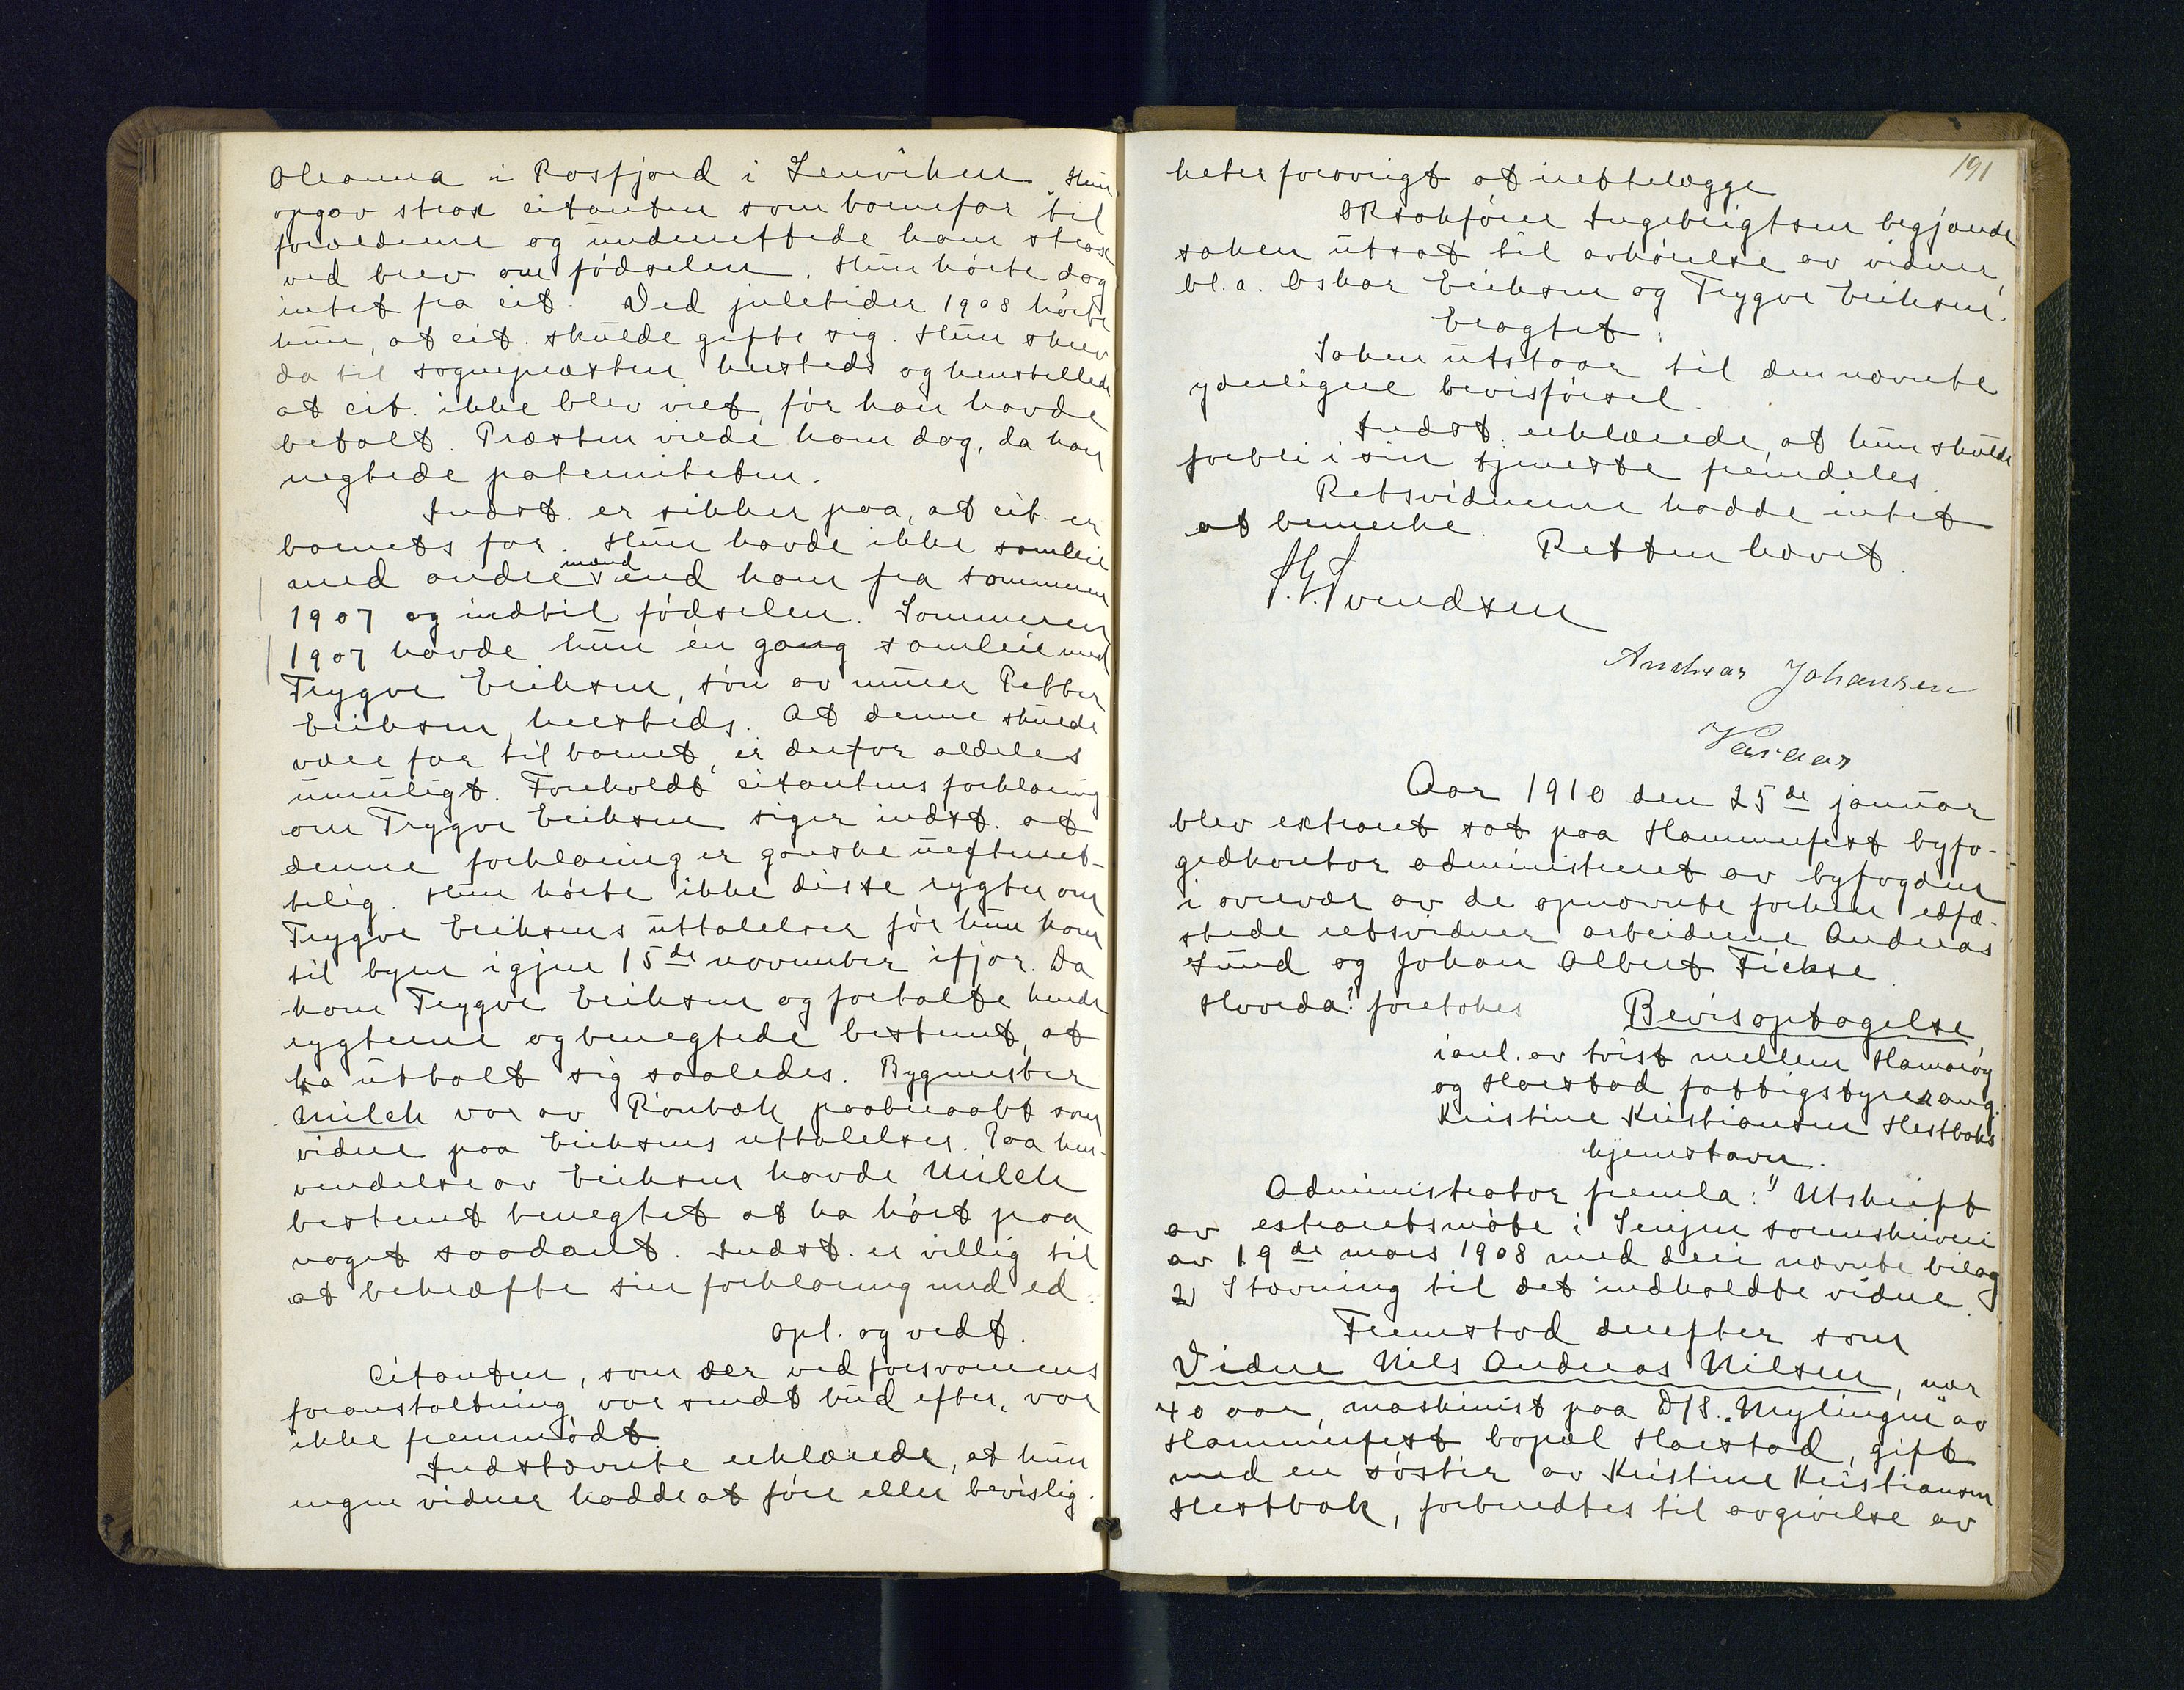 Oleanna i Rosfjord i Lenviken. Hun
opgav strax citanten som barnefar til
forældrene og underrettede ham strax
ved brev om fødselen. Hun hørte dog
intet fra cit. Ved juletider 1908 hørte
hun, at cit. skulde gifte sig. Hun skrev
da til sognepræsten hersteds og henstillede
at cit. ikke blev viet, før han havde
betalt. Præsten viede ham dog, da han
negtede paterniteten.
Indst. er sikker paa, at cit. er
barnets far. Hun havde ikke samleie
med andre mænd end ham fra sommeren
1907 og indtil fødselen. Sommeren
1907 havde hun én gang samleie med
Trygve Eriksen, søn av murer Petter
Eriksen, hersteds. At denne skulde
være far til barnet, er derfor aldeles
umuligt. Foreholdt citantens forklaring
om Trygve Eriksen siger indst. at
denne forklaring er ganske uefterret-
telig. Hun hørte ikke disse rygter om
Trygve Eriksens uttalelser før hun kom
til byen igjen 15de november ifjor. Da
kom Trygve Eriksen og fortalte hende
rygterne og benegtede bestemt, at
ha uttalt sig saaledes. Bygmester
Milch var av Rønbæk paaberaabt som
vidne paa Eriksens uttalelser. Paa hen-
vendelse av Eriksen havde Milch
bestemt benegtet at ha hørt paa
noget saadant. Indst. er villig til
at bekræfte sin forklaring med ed.
Opl. og vedt.
Citanten, som der ved forsvarerens
foranstaltning var sendt bud efter, var
ikke fremmødt.
Indstævnte erklærede, at hun
ingen vidner hadde at føre eller bevislig-
191
heter forøvrigt at irettelægge
ORsakfører Ingebrigtsen begjærede
saken utsat til avhørelse av vidner,
bl.a. Oskar Eriksen og Trygve Eriksen.
Eragtet:
Saken utstaar til den nævnte
yderligere bevisførsel.
Indst. erklærede, at hun skulde
forbli i sin tjeneste fremdeles.
Retsvidnerne hadde intet
at bemerke. Retten hævet.
Svendsen
Andreas Johansen
Aar 1910 den 25de januar
blev extraret sat paa Hammerfest byfo-
gedkontor administreret av byfogden
i overvær av de opnævnte forhen edfæ-
stede retsvidner arbeiderne Andreas
Lund og Johan Albert Fickse
Hvorda: foretokes Bevisoptagelse
i anl. av tvist mellem Hamarøy
og Harstad fattigstyrer ang.
Kristine Kristiansen Hestbaks
hjemstavn.
Administrator fremla: 1) Utskrift
av extraretsmøte i Senjen sorenskriveri
av 19de mars 1908 med deri nævnte bilag
2) Stævning til det indkaldte vidne.
Fremstod derefter som
Vidne Nils Andreas Nilsen, nær
40 aar, maskinist paa D/S. "Mylingen" av
Hammerfest bopæl Harstad, gift
med en søster av Kristine Kristiansen
Hestbak, forberedtes til avgivelse av